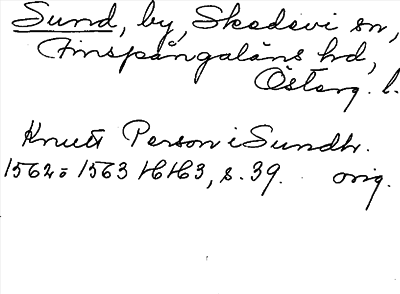 Sund, by, Skedevi sn,
Finspångaläns hd,
Östarg. l.
Knutt Person i Sundh.
1562 = 1563 HHB, s. 39. orig.